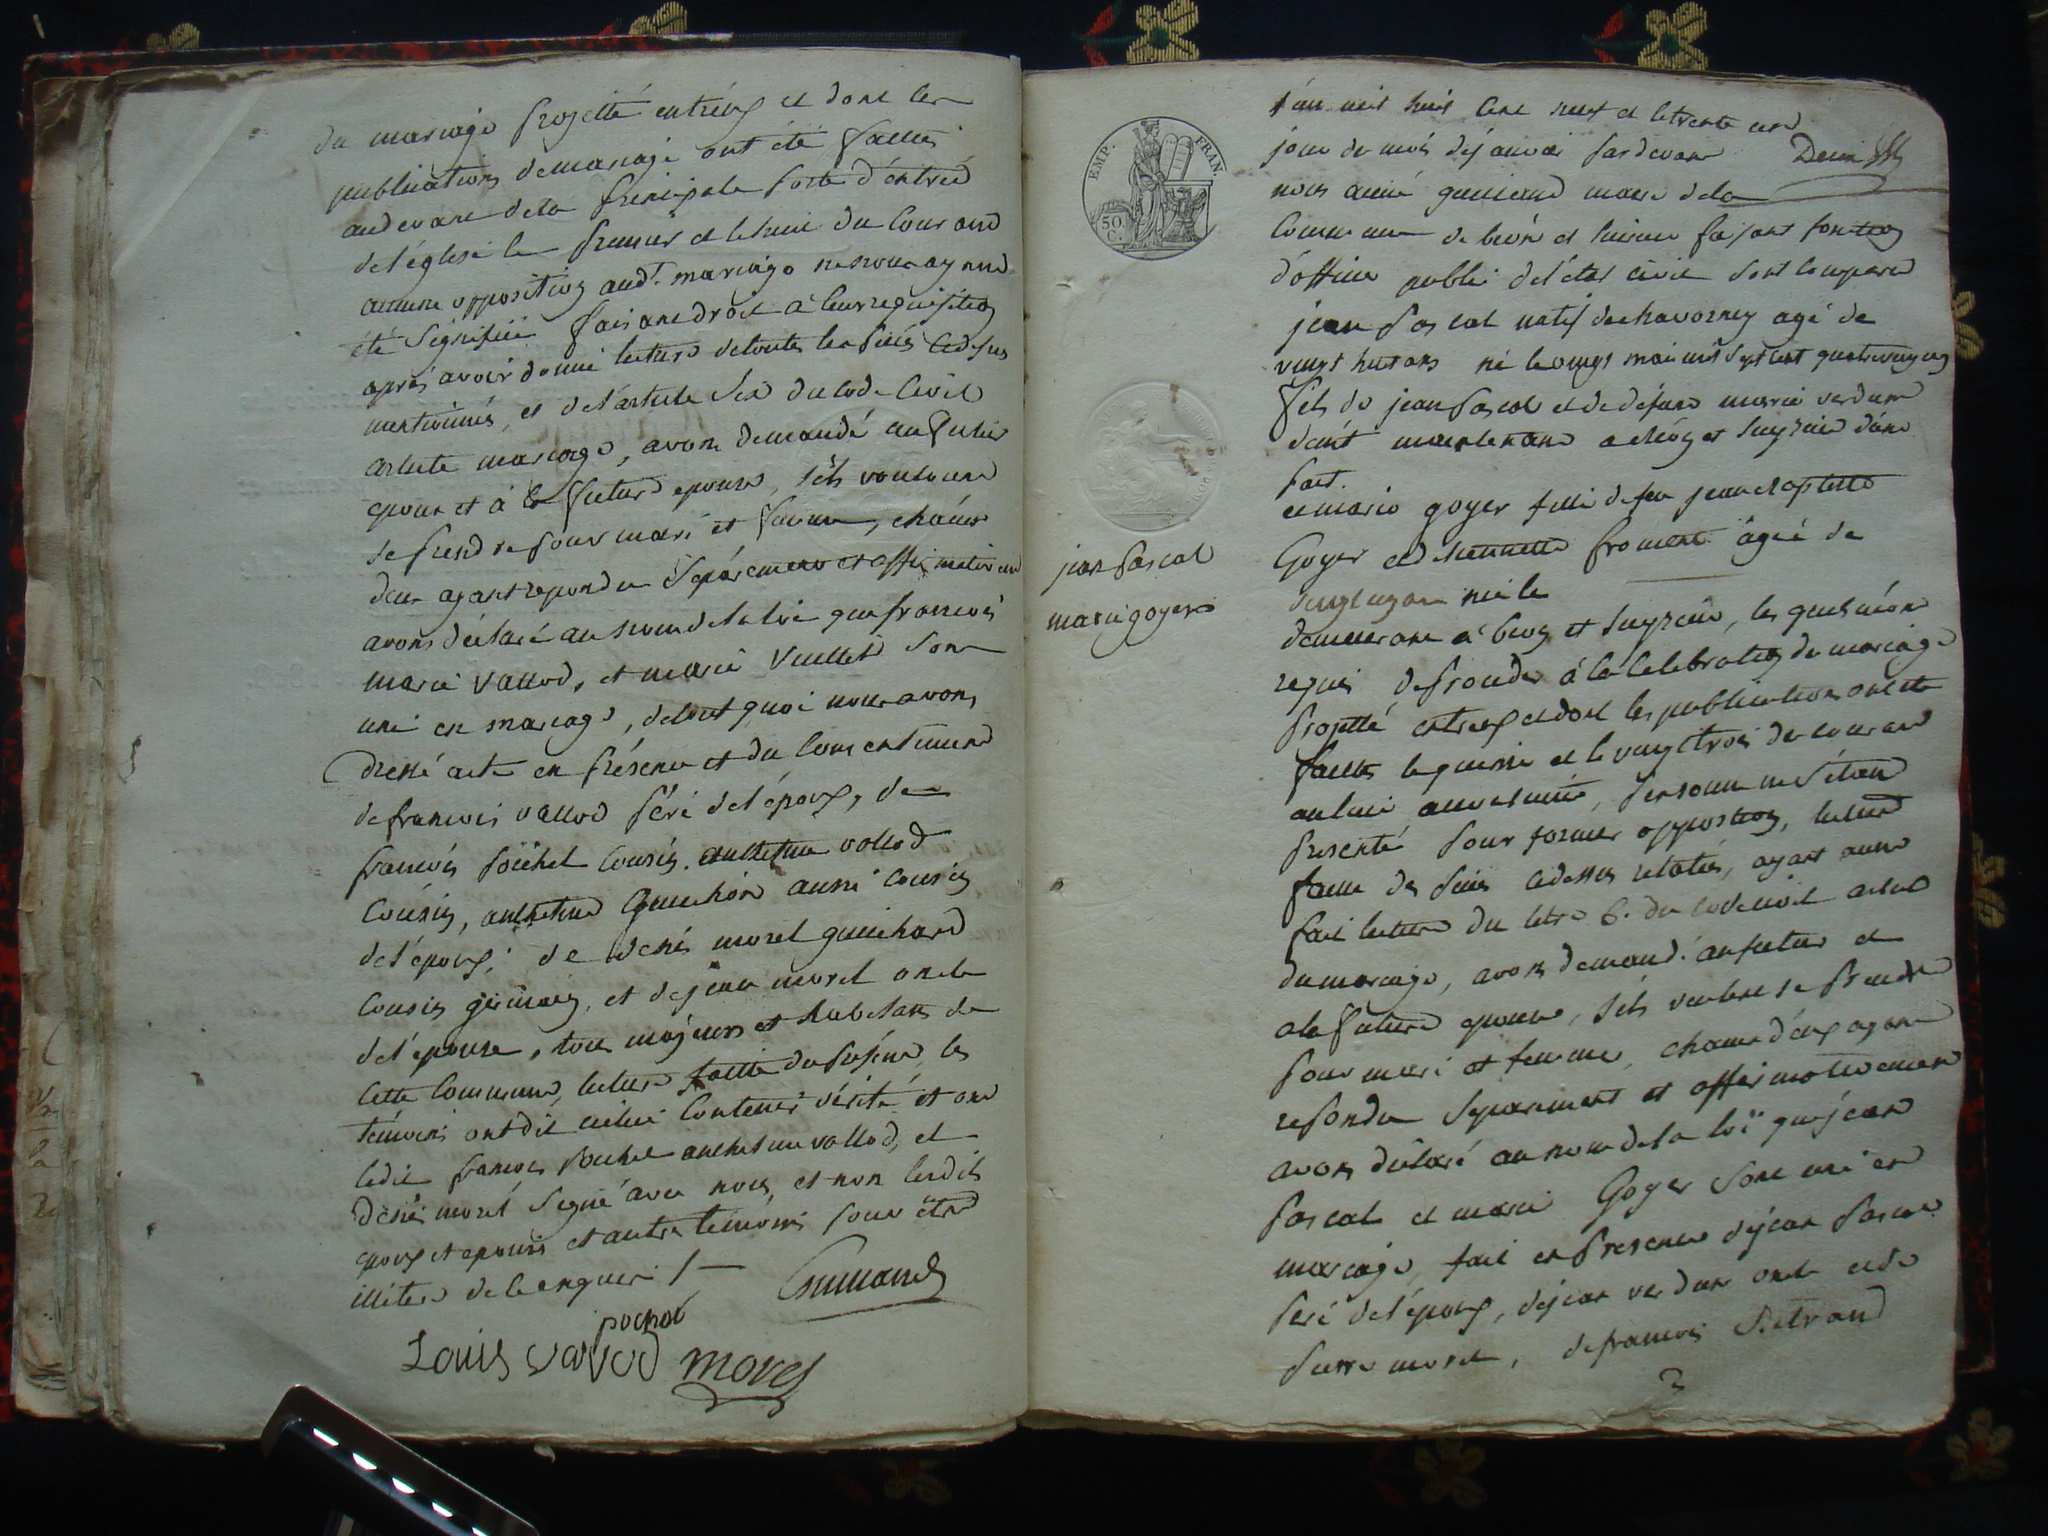 du mariage projetté entréux et dont les
publications de mariage ont été faittes
audevant de la principale porte d'éntrée
de l'église le premier et le huit du courand
aucune opposition aud.t mariage ne nous ayant
été signifiée faisant droit à leur requisition
aprés avoir donné lecture de toutes les piéces cidesus
mentionnés, et de l'article six du code civil
article mariage, avons demandé au futur
epoux et à la future epouse, s'ils voulurent
se prendre pour mari et femme, chacun
deux ayant repondu séparément et affirmativement
avons déclaré au nom de la loi que francois
marie vallod, et marie vuillet sont
uni en mariage, de tout quoi nous avons
dressé acte en présence et du consentement
de francois vallod péré de l'époux, de
francois pochet cousin, anthelme vallod
cousin, anthelme Guichon aussi cousin
de l'époux, de denis morel guichard
cousin germain, et de jean morel oncle
de l'épouse, tous majeurs et habitans de
cette commune, lecture faitte du présent, les
témoins ont dit icelui contenir vérité et ont
ledit francois pochet anthelme vallod, et
denis morel signé avec nous, et non lesdits
epoux et epouse et autres témoins pour être
illiteré de ce enquis /
Guillaud
pochet
Louis vavod morel
EMP. FRAN.
50 C.
jean pascal
marie goyer
l'an mil huit cent neuf et le trente un
jour du mois de janvier pardevant
nous aimé guillaud maire de la
commune de béon et luirieu faisant fonction
d'officier public de l'état civil sont comparu
jean pascal natif de chavornay agé de
vingt huit ans né le vingt mai mil sept cent quatrevingt un
fils de jean pascal et de defunte marie verdun
maintenant a béon et luyrieu d'une
part.
et marie goyer fille de feu jean baptiste
Goyer et de henriette froment âgée de
née le
demeurant à béon et luyrieu, les quels m'ont
requis de proceder à la célébration du mariage
projetté entreux et dont les publications ont été
faittes le quinze et le vingt trois du courant
personne ne s'étant
presenté pour former opposition, lecture
faitte des piéces cidessus relatées, ayant aussi
fait lecture du titre 6. du code civil article
du mariage, avons demandé au futur et
a la future epouse, s'ils veulent se prendre
pour mari et femme, chacun d'éux ayant
repondu séparement et affirmativement
avons déclaré au nom de la loi que jean
pascal et marie Goyer sont uni en
mariage, fait en presence de jean pascal
peré de l'époux, de jean verdun oncle et de
pierre morel, de francois Betrand